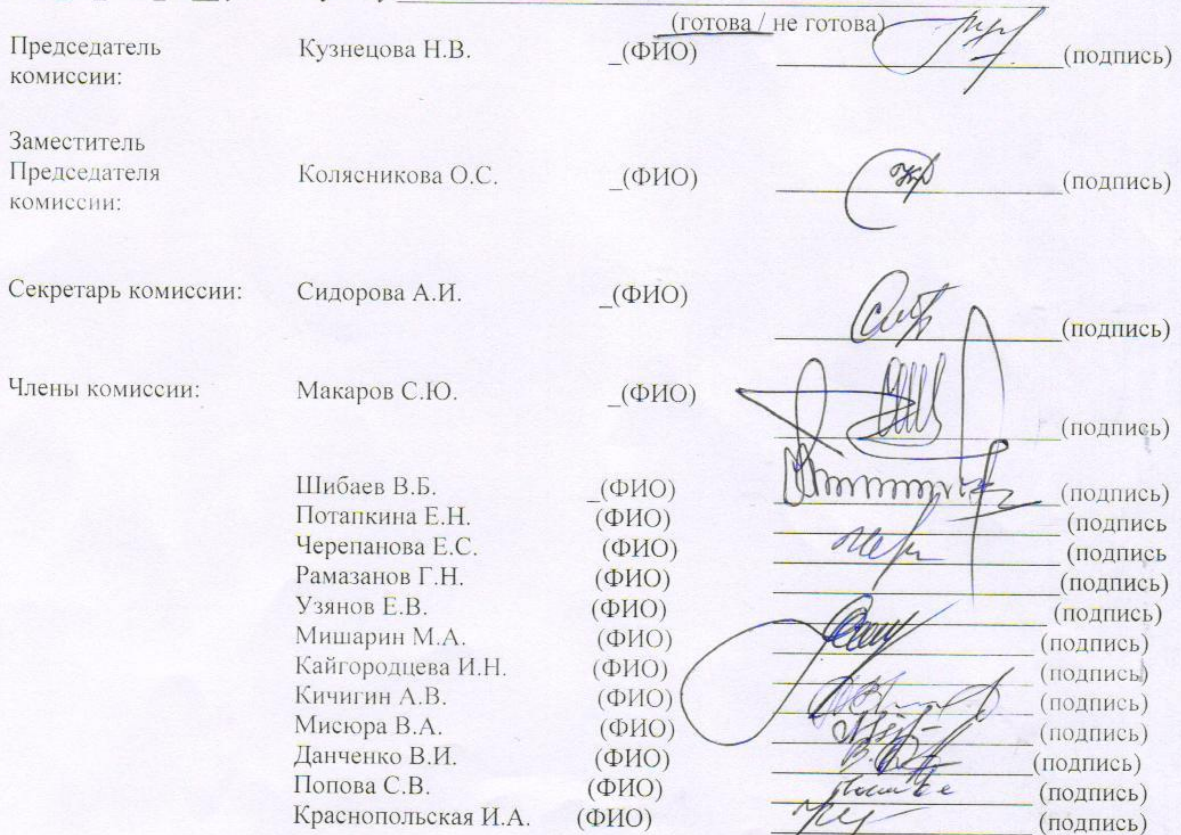 (готова / не готова)
Председатель Кузнецова Н.В. _(ФИО) (подпись)
комиссии:
Заместитель
Председателя Колясникова О.С. _(ФИО) (подпись)
комиссии:
Секретарь комиссии: Сидорова А.И. _(ФИО)
(подпись)
Члены комиссии: Макаров С.Ю. _(ФИО)
(подпись)
Шибаев В.Б. _(ФИО) (подпись)
Потапкина Е.Н. (ФИО) (подпись
Черепанова Е.С. (ФИО) (подпись
Рамазанов Г.Н. (ФИО) (подпись)
Узянов Е.В. (ФИО) (подпись)
Мишарин М.А. (ФИО) (подпись)
Кайгородцева И.Н. (ФИО) (подпись)
Кичигин А.В. (ФИО) (подпись)
Мисюра В.А. (ФИО) (подпись)
Данченко В.И. (ФИО) (подпись)
Попова С.В. (ФИО) (подпись)
Краснопольская И.А. (ФИО) (подпись)